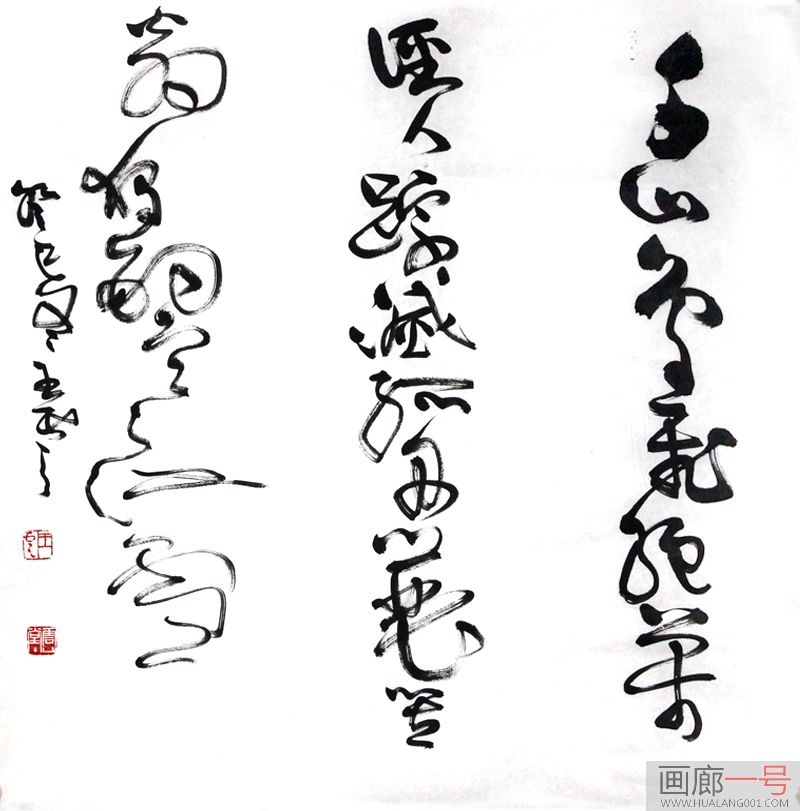 千山鳥飛絕萬
徑人踪滅孤舟蓑笠
翁獨釣寒江雪
癸巳
画廊一号
WWW.HUALANG001.COM